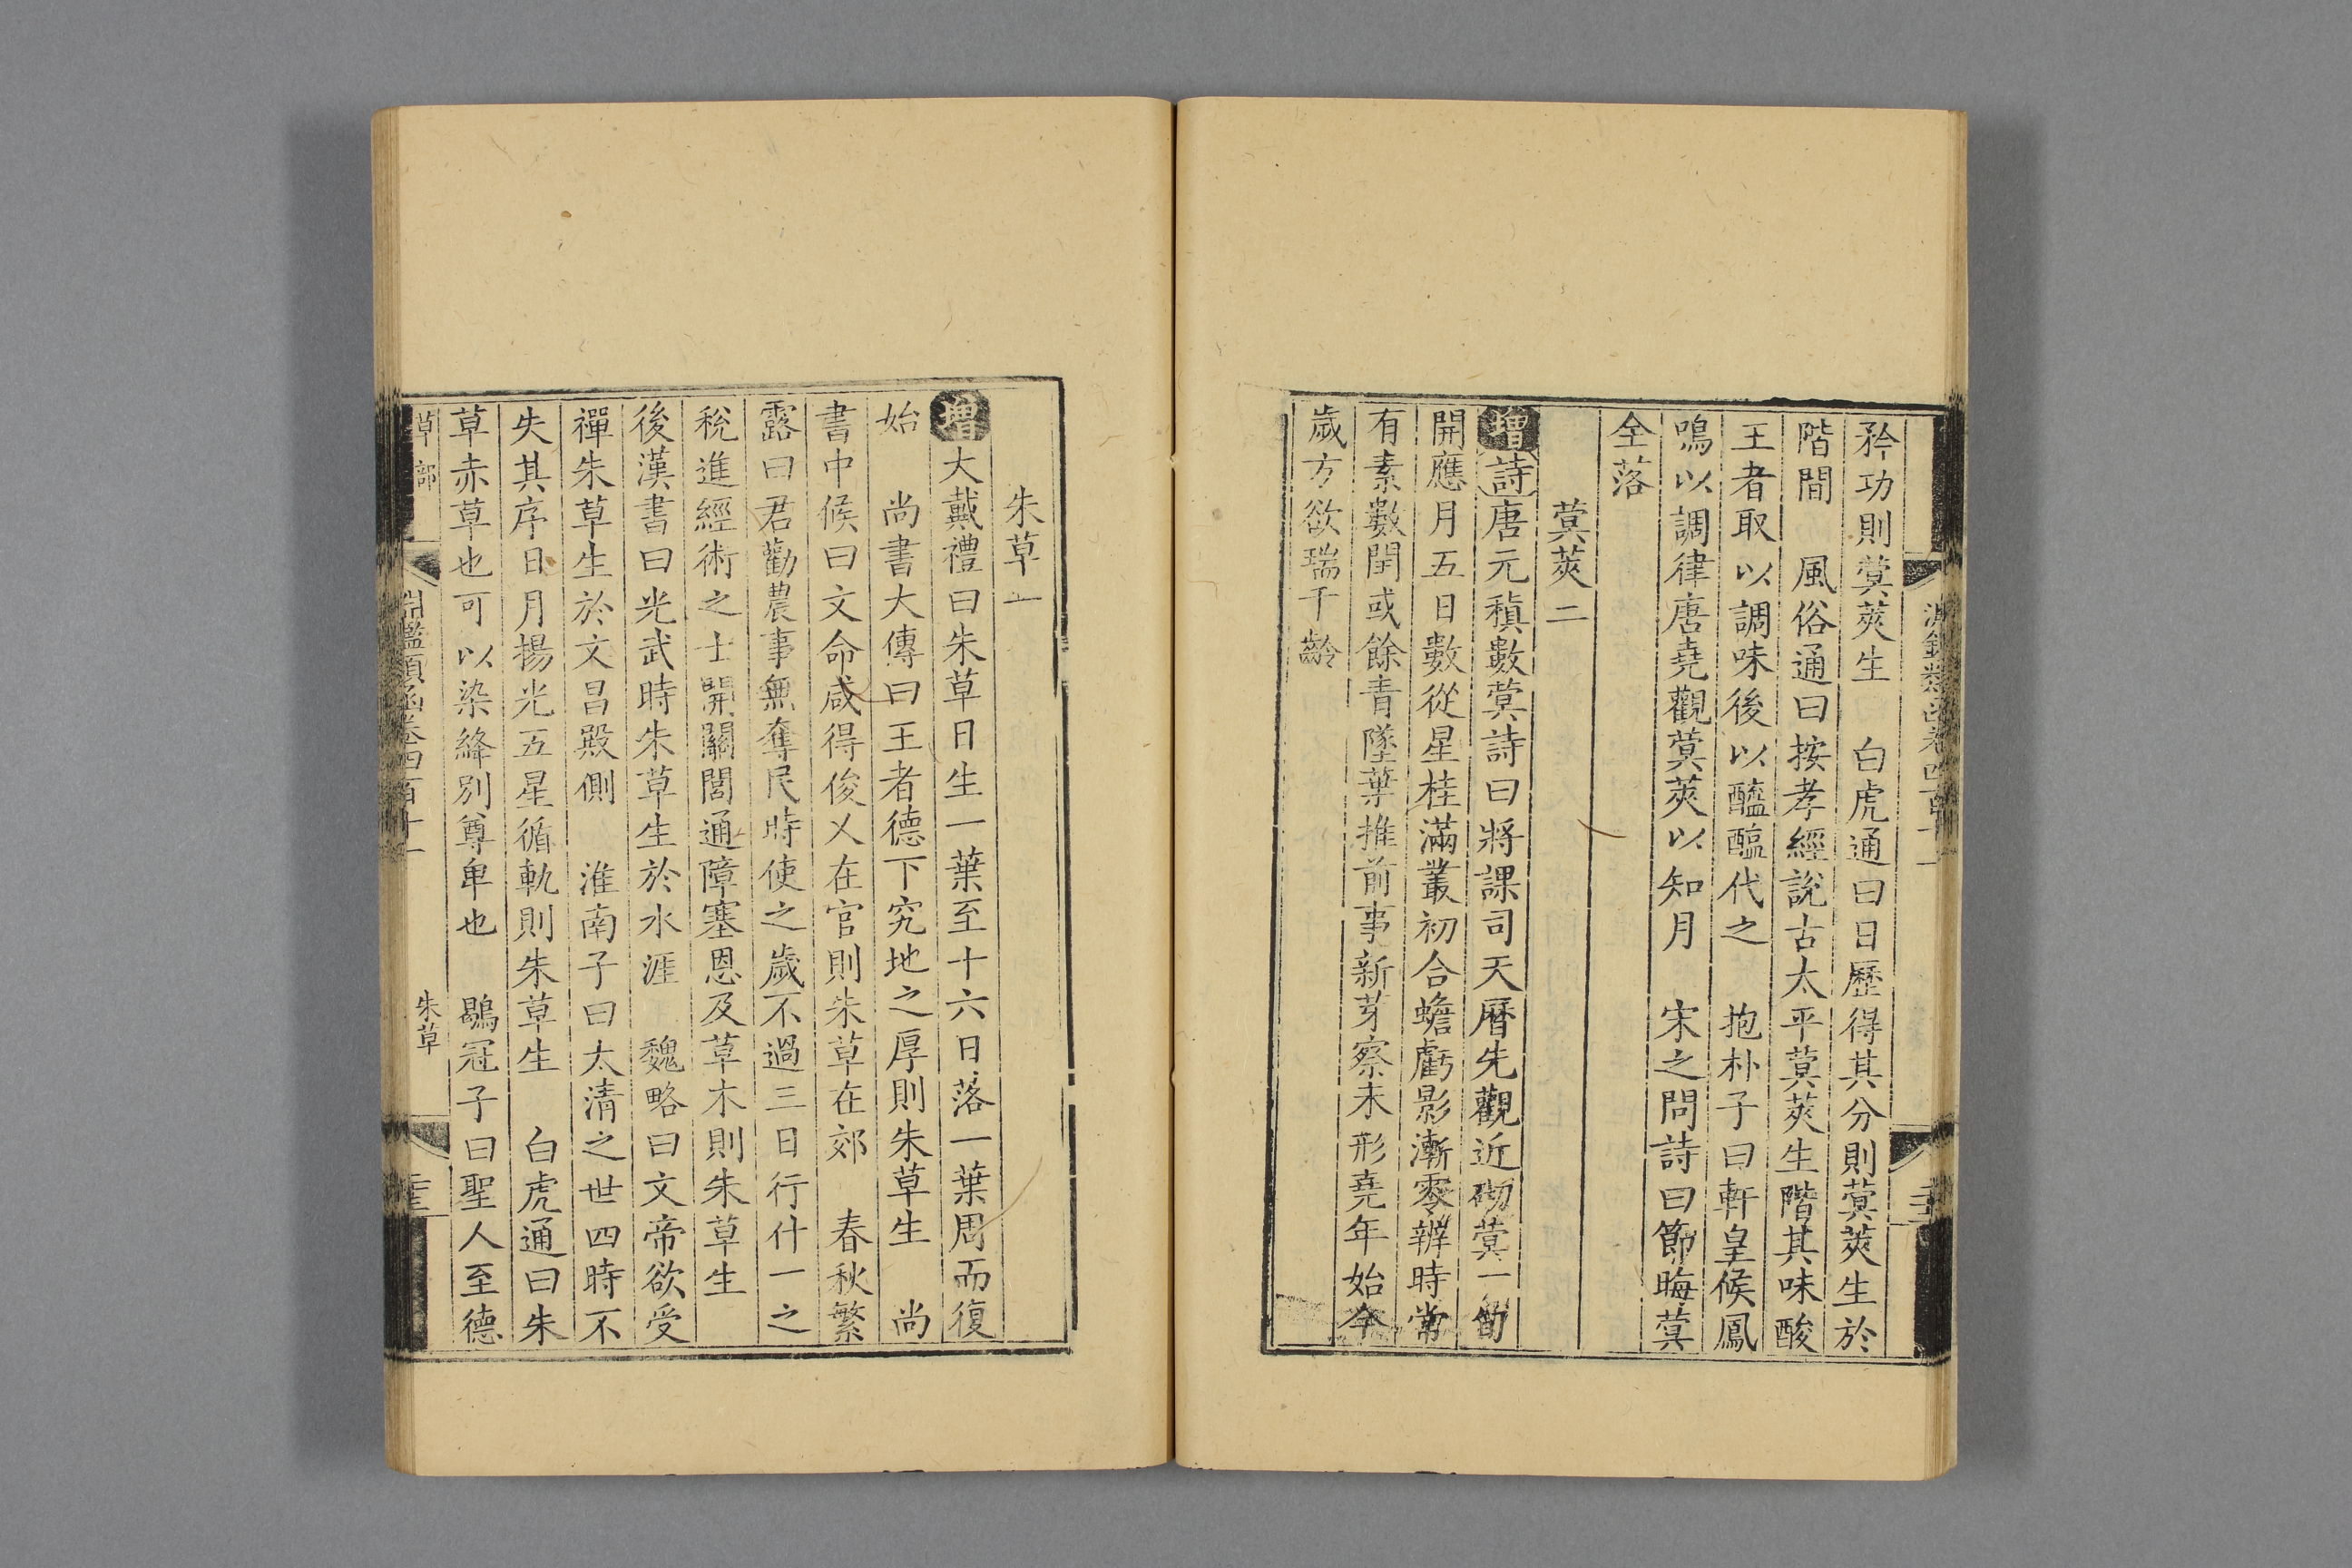 矜功則蓂莢生　白虎通曰日歷得其分則蓂莢生於
階間　風俗通曰按孝經說古太平蓂莢生階其味酸
王者取以調味後以醯醢代之　抱朴子曰軒皇候鳳
鳴以調律唐堯觀蓂莢以知月　宋之問詩曰節晦蓂
全落
蓂莢二
增詩唐元稹數蓂詩曰將課司天曆先觀近砌蓂一旬
開應月五日數從星桂滿叢初合蟾虧影漸零辨時常
有素數閏或餘青墜葉推前事新芽察未形堯年始今
歲方欲瑞千齡
朱草一
增大戴禮曰朱草日生一葉至十六日落一葉周而復
始　尚書大傳曰王者德下究地之厚則朱草生　尚
書中候曰文命咸得俊乂在官則朱草在郊　春秋繁
露曰君勸農事無奪民時使之歲不過三日行什一之
稅進經術之士開關閭通障塞恩及草木則朱草生
後漢書曰光武時朱草生於水涯　魏略曰文帝欲受
禪朱草生於文昌殿側　淮南子曰太清之世四時不
失其序日月揚光五星循軌則朱草生　白虎通曰朱
草赤草也可以染絳別尊卑也　鶡冠子曰聖人至德
草部　淵鑑類函卷四百十一　朱草